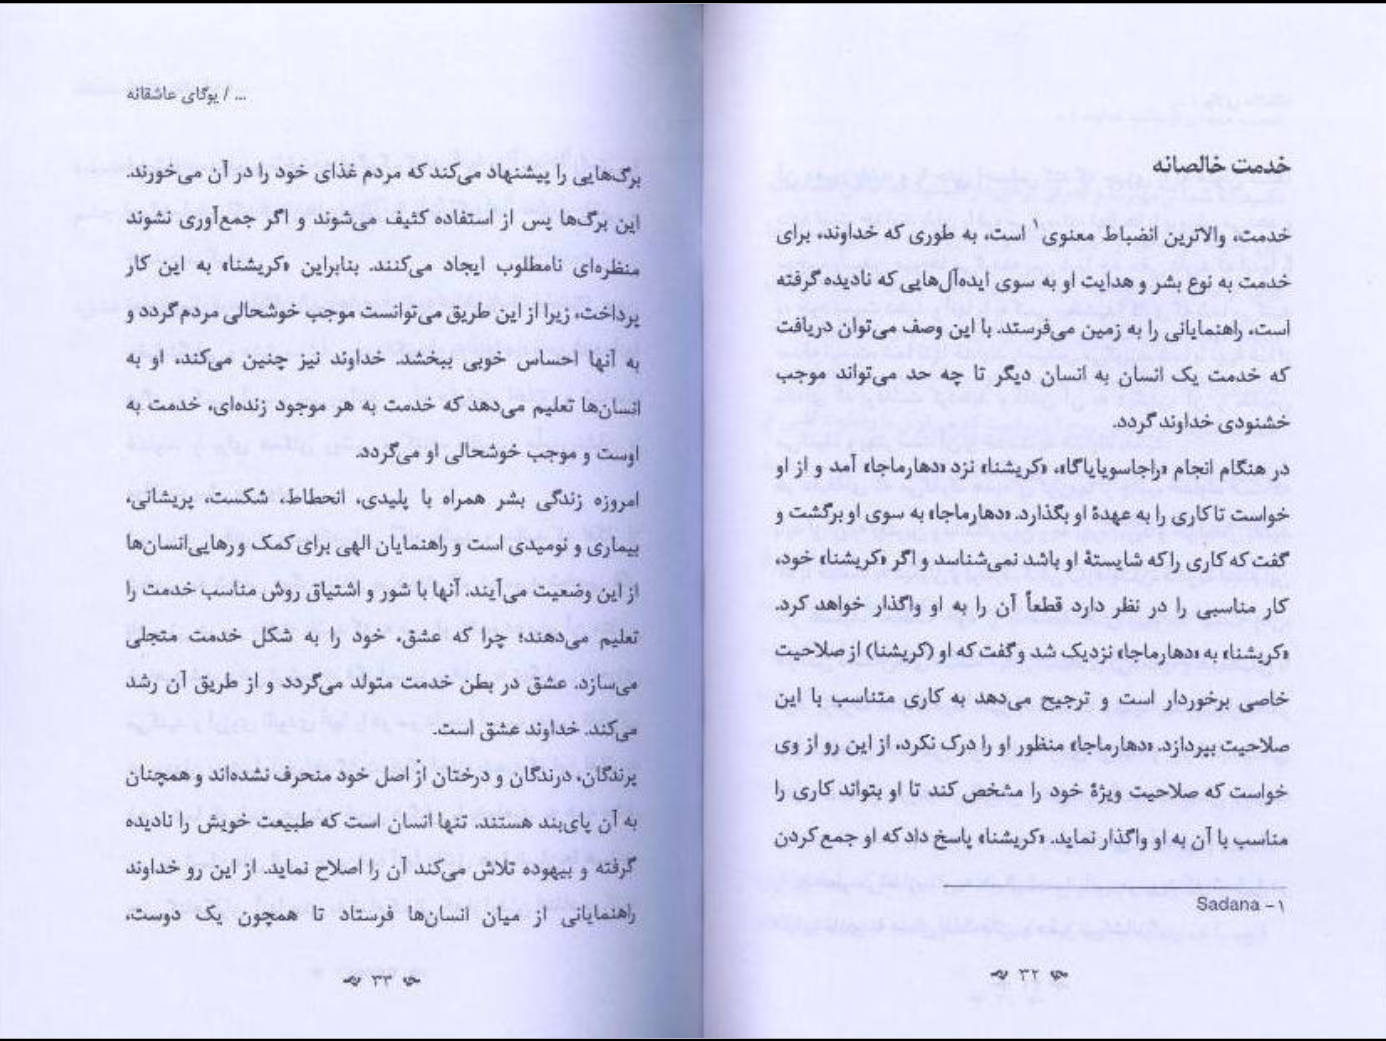 خدمت خالصانه
خدمت، والاترین انضباط معنوی۱ است، به طوری که خداوند، برای
خدمت به نوع بشر و هدایت او به سوی ایده‌آل‌هایی که نادیده گرفته
است، راهنمایانی را به زمین می‌فرستد. با این وصف می‌توان دریافت
که خدمت یک انسان به انسان دیگر تا چه حد می‌تواند موجب
خشنودی خداوند گردد.
در هنگام انجام «راجاسویایاگا»، «کریشنا» نزد «دهارماجا» آمد و از او
خواست تا کاری را به عهدهٔ او بگذارد. «دهارماجا» به سوی او برگشت و
گفت که کاری را که شایستهٔ او باشد نمی‌شناسد و اگر «کریشنا» خود،
کار مناسبی را در نظر دارد قطعاً آن را به او واگذار خواهد کرد.
«کریشنا» به «دهارماجا» نزدیک شد و گفت که او (کریشنا) از صلاحیت
خاصی برخوردار است و ترجیح می‌دهد به کاری متناسب با این
صلاحیت بپردازد. «دهارماجا» منظور او را درک نکرد، از این رو از وی
خواست که صلاحیت ویژهٔ خود را مشخص کند تا او بتواند کاری را
مناسب با آن به او واگذار نماید. «کریشنا» پاسخ داد که او جمع کردن
۱- Sadana
۳۲
... / یوگای عاشقانه
برگ‌هایی را پیشنهاد می‌کند که مردم غذای خود را در آن می‌خورند.
این برگ‌ها پس از استفاده کثیف می‌شوند و اگر جمع‌آوری نشوند
منظره‌ای نامطلوب ایجاد می‌کنند. بنابراین «کریشنا» به این کار
پرداخت، زیرا از این طریق می‌توانست موجب خوشحالی مردم گردد و
به آنها احساس خوبی ببخشد. خداوند نیز چنین می‌کند، او به
انسان‌ها تعلیم می‌دهد که خدمت به هر موجود زنده‌ای، خدمت به
اوست و موجب خوشحالی او می‌گردد.
امروزه زندگی بشر همراه با پلیدی، انحطاط، شکست، پریشانی،
بیماری و نومیدی است و راهنمایان الهی برای کمک و رهایی انسان‌ها
از این وضعیت می‌آیند. آنها با شور و اشتیاق روش مناسب خدمت را
تعلیم می‌دهند؛ چرا که عشق، خود را به شکل خدمت متجلی
می‌سازد. عشق در بطن خدمت متولد می‌گردد و از طریق آن رشد
می‌کند. خداوند عشق است.
پرندگان، درندگان و درختان از اصل خود منحرف نشده‌اند و همچنان
به آن پای‌بند هستند. تنها انسان است که طبیعت خویش را نادیده
گرفته و بیهوده تلاش می‌کند آن را اصلاح نماید. از این رو خداوند
راهنمایانی از میان انسان‌ها فرستاد تا همچون یک دوست،
۳۳